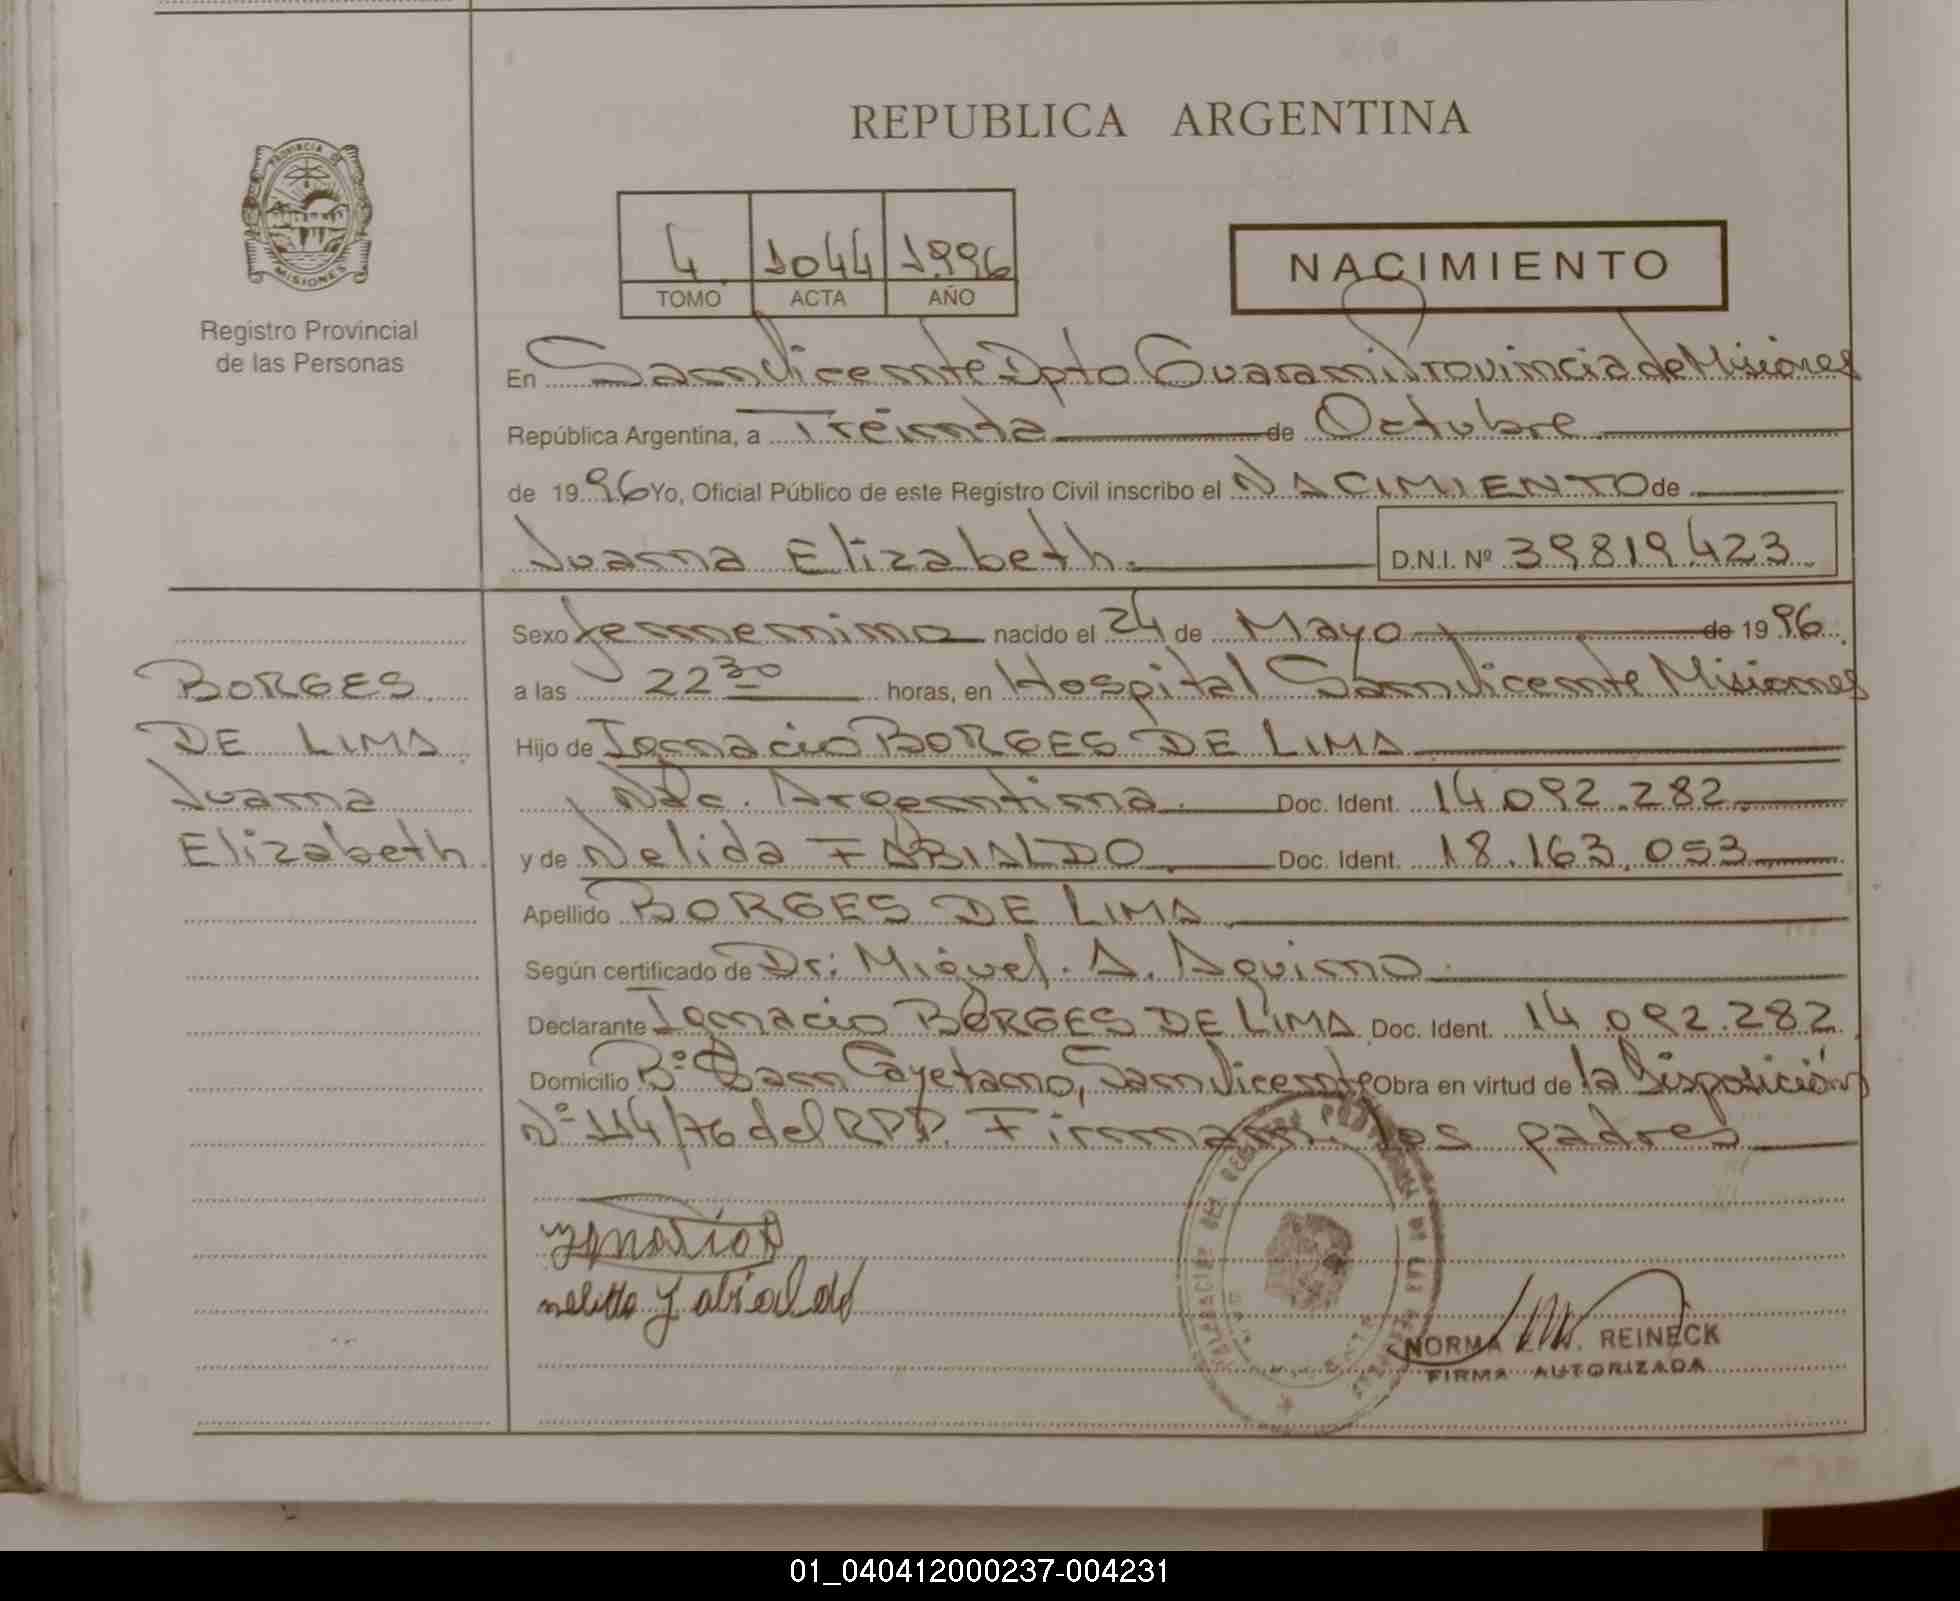 REPUBLICA ARGENTINA
PROVINCIA DE
MISIONES
Registro Provincial
de las Personas
4 1044 1996
TOMO ACTA AÑO
NACIMIENTO
En San Vicente Dpto Guarani Provincia de Misiones
República Argentina, a Treinta de Octubre
de 1996 Yo, Oficial Público de este Registro Civil inscribo el NACIMIENTO de
Juana Elizabeth. D.N.I. Nº 39819.423
Sexo femenino nacido el 24 de Mayo de 1996
a las 22 30 horas, en Hospital San Vicente Misiones
Hijo de Ignacio BORGES DE LIMA
Nac. Argentina. Doc. Ident. 14.092.282
y de Nelida FABIALDO Doc. Ident. 18.163.053
Apellido BORGES DE LIMA
Según certificado de Dr: Miguel. A. Aquino
Declarante Ignacio BORGES DE LIMA Doc. Ident. 14.092.282
Domicilio Bº San Cayetano, San Vicente Obra en virtud de la Disposición
Nº 114/76 del RPP. Firman los padres
BORGES
DE LIMA
Juana
Elizabeth
NORMA REINECK
FIRMA AUTORIZADA
01_040412000237-004231